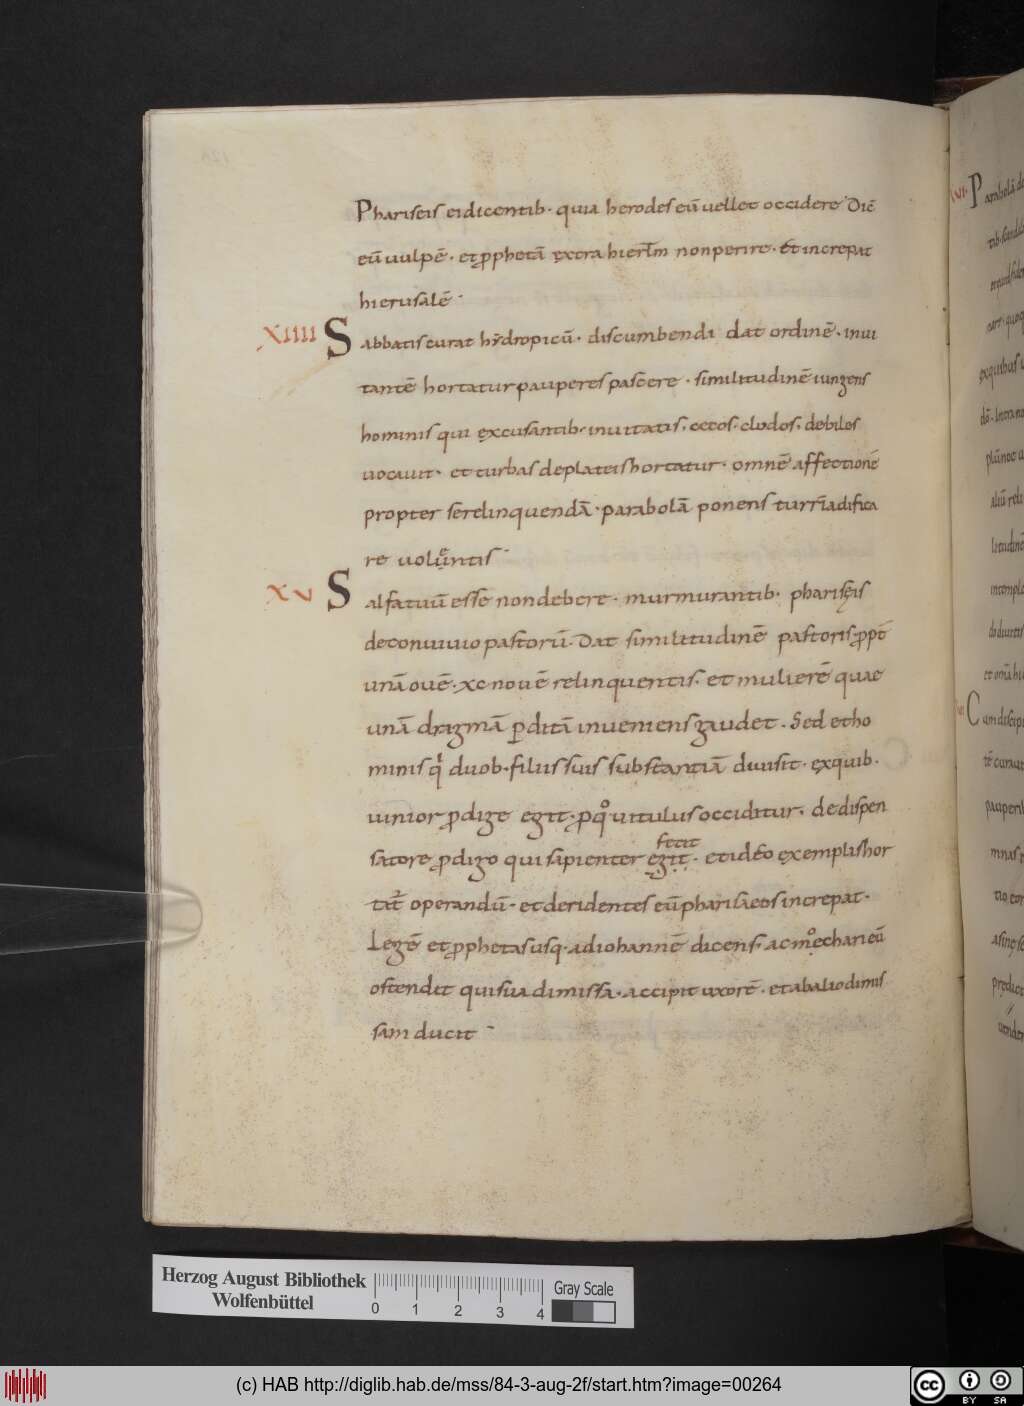 Phariseis ei dicentib· quia herodes eū uellet occidere Dic̄
eū uulpē· et ꝓphetā extra hierl̄m non perire· Et increpat
hierusalē·
XIIII Sabbatis curat hydropicū· discumbendi dat ordinē· inui
tantē hortatur pauperes pascere· similitudinē iungens
hominis qui ęxcusantib· inuitatis· cecos· clodos· debiles
uocauit· et turbas de plateis hortatur· omnē affectionē
propter se relinquendā· parabolā ponens turrī ædifica
re uolentis·
XV Sal fatuū esse non debere· murmurantib· pharisęis
de conuiuio pastorū· Dat similitudinē pastoris ꝓpt̄
unā ouē· xc nouē relinquentis· et mulierē quae
unā dragmā ꝑditā inueniens gaudet· Sed et ho
minis qͥ duob· filiis suis substantiā diuisit· ęx quib·
iunior ꝓdige egit· ꝓ qͦ uitulus occiditur· de dispen
fecit
satore ꝓdigo qui sapienter egit· et ideo ęxemplis hor
tat̄ operandū· et deridentes eū pharisaeos increpat·
Legē et ꝓphetas usq· ad iohannē dicens· ac męchari eū
ostendit qui sua dimissa· accipit uxorē· et ab alio dimis
sam ducit
XVI· Parabolā de
Herzog August Bibliothek
Wolfenbüttel
0 1 2 3 4
Gray Scale
(c) HAB http://diglib.hab.de/mss/84-3-aug-2f/start.htm?image=00264
cc BY SA